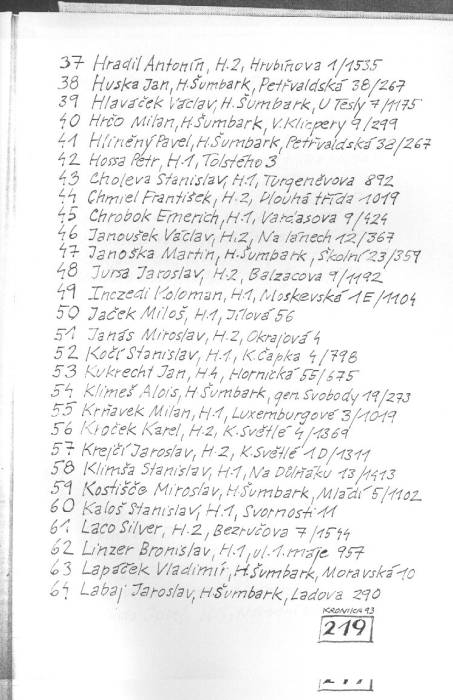 37 Hradil Antonín, H.2, Hrubínova 1/1535
38 Huska Jan, H.Šumbark, Petřvaldská 38/267
39 Hlaváček Václav, H.Šumbark, U Tesly 7/1175
40 Hrčo Milan, H.Šumbark, V.Klicpery 9/299
41 Hliněný Pavel, H.Šumbark, Petřvaldská 38/267
42 Hossa Petr, H.1, Tolstého 3
43 Choleva Stanislav, H.1, Turgeněvova 892
44 Chmiel František, H.2, Dlouhá třída 1019
45 Chrobok Emerich, H.1, Vardasova 9/424
46 Janoušek Václav, H.2, Na lánech 12/367
47 Janoška Martin, H.Šumbark, Školní 23/359
48 Jursa Jaroslav, H.2, Balzacova 9/1192
49 Inczedi Koloman, H.1, Moskevská 1E/1104
50 Jaček Miloš, H.1, Jílová 56
51 Janás Miroslav, H.2, Okrajová 4
52 Kočí Stanislav, H.1, K.Čapka 4/798
53 Kukrecht Jan, H.4, Hornická 55/675
54 Klimeš Alois, H.Šumbark, gen. Svobody 19/273
55 Krňavek Milan, H.1, Luxemburgové 3/1019
56 Kroček Karel, H.2, K.Světlé 4/1369
57 Krejčí Jaroslav, H.2, K.Světlé 1D/1311
58 Klimša Stanislav, H.1, Na Důlňáku 13/1413
59 Kostišče Miroslav, H.Šumbark, Mládí 5/1102
60 Kaloš Stanislav, H.1, Svornosti 11
61 Laco Silver, H.2, Bezručova 7/1544
62 Linzer Bronislav, H.1, ul.1.máje 957
63 Lapáček Vladimír, H.Šumbark, Moravská 10
64 Labaj Jaroslav, H.Šumbark, Ladova 290
KRONIKA 93
219